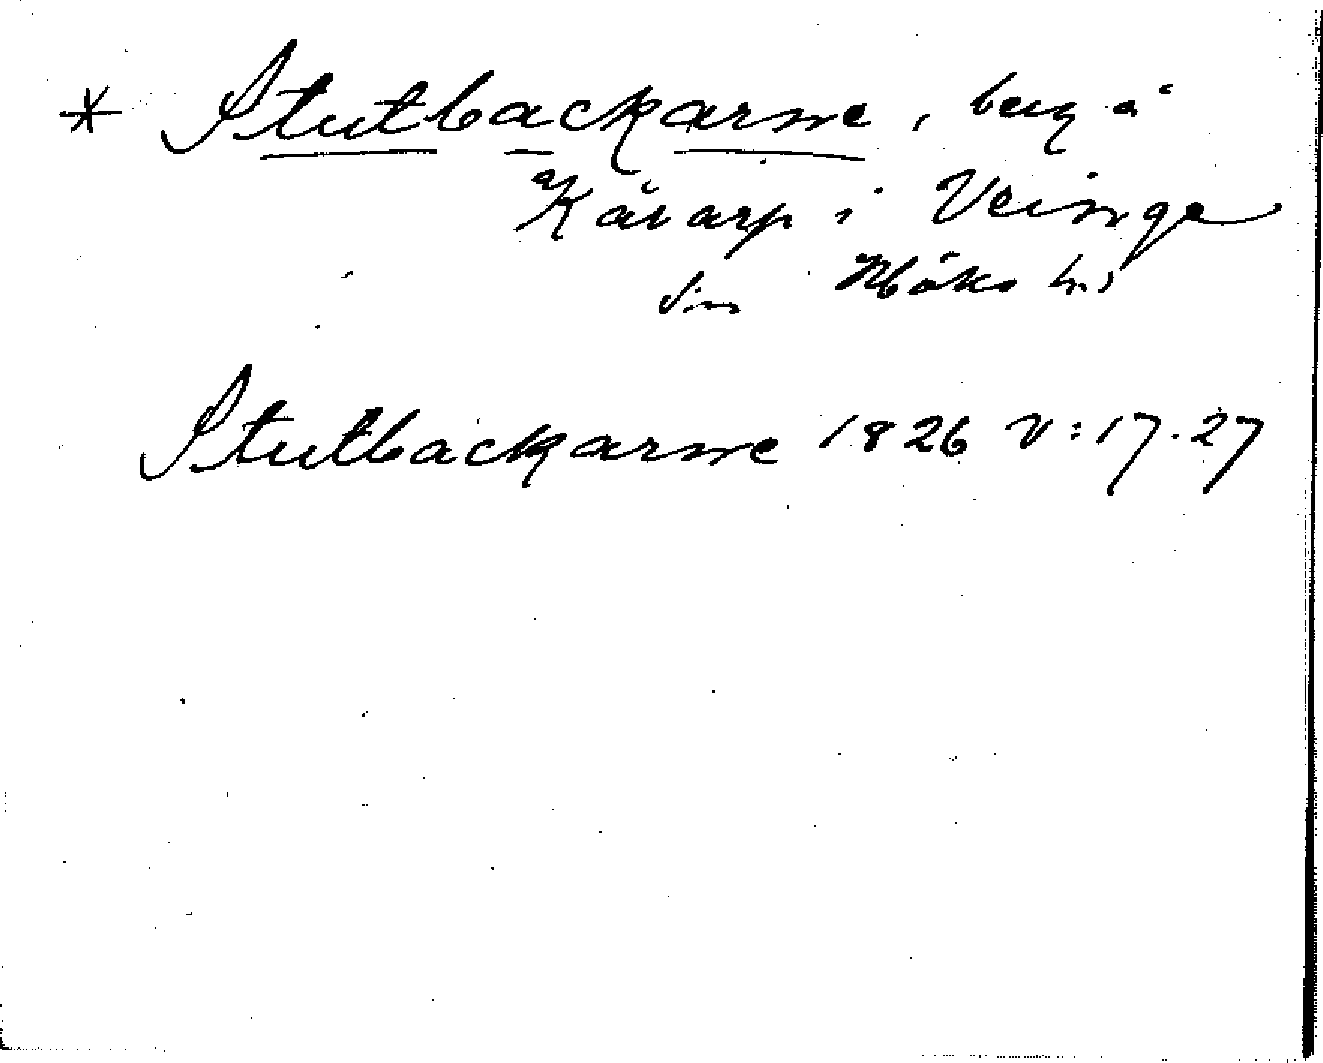 * Stutbackarne, berg å
Kåvarp i Veinge
sn Höks hd
Stutbackarne 1826 V:17.27